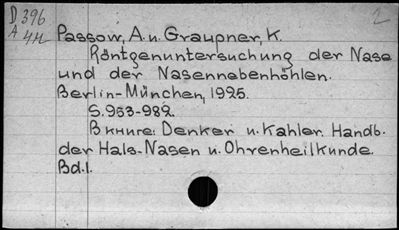 D 396 2
A 4М Passow, A. u. Graupner, K.
Röntgenuntersuchung der Nase
und der Nasennebenhöhlen.
Berlin-München, 1925.
S. 953-982.
В книге: Denker u. Kahler. Handb.
der Hals-Nasen u. Ohrenheilkunde.
Bd. 1.